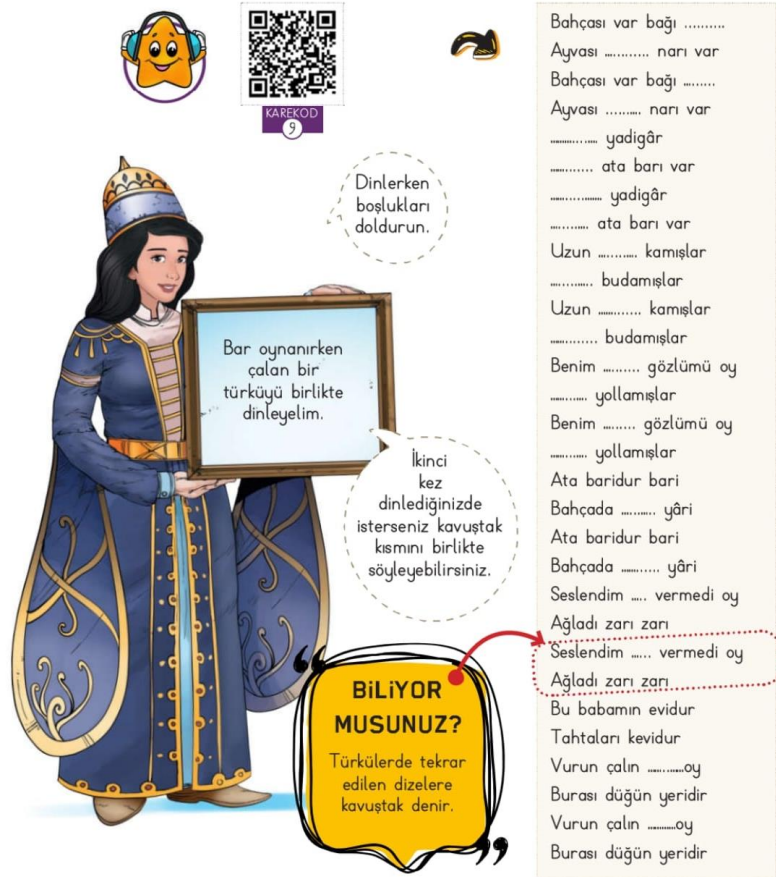 KAREKOD
9
Dinlerken
boşlukları
doldurun.
Bar oynanırken
çalan bir
türküyü birlikte
dinleyelim.
İkinci
kez
dinlediğinizde
isterseniz kavuştak
kısmını birlikte
söyleyebilirsiniz.
BİLİYOR
MUSUNUZ?
Türkülerde tekrar
edilen dizelere
kavuştak denir.
Bahçası var bağı ..........
Ayvası ............ narı var
Bahçası var bağı .........
Ayvası .......... narı var
.............. yadigâr
............. ata barı var
............... yadigâr
............ ata barı var
Uzun ........... kamışlar
............ budamışlar
Uzun ............. kamışlar
.............. budamışlar
Benim .......... gözlümü oy
............ yollamışlar
Benim ......... gözlümü oy
............ yollamışlar
Ata baridur bari
Bahçada .......... yâri
Ata baridur bari
Bahçada ............ yâri
Seslendim ..... vermedi oy
Ağladı zarı zarı
Seslendim ...... vermedi oy
Ağladı zarı zarı
Bu babamın evidur
Tahtaları kevidur
Vurun çalın ............oy
Burası düğün yeridir
Vurun çalın ............oy
Burası düğün yeridir